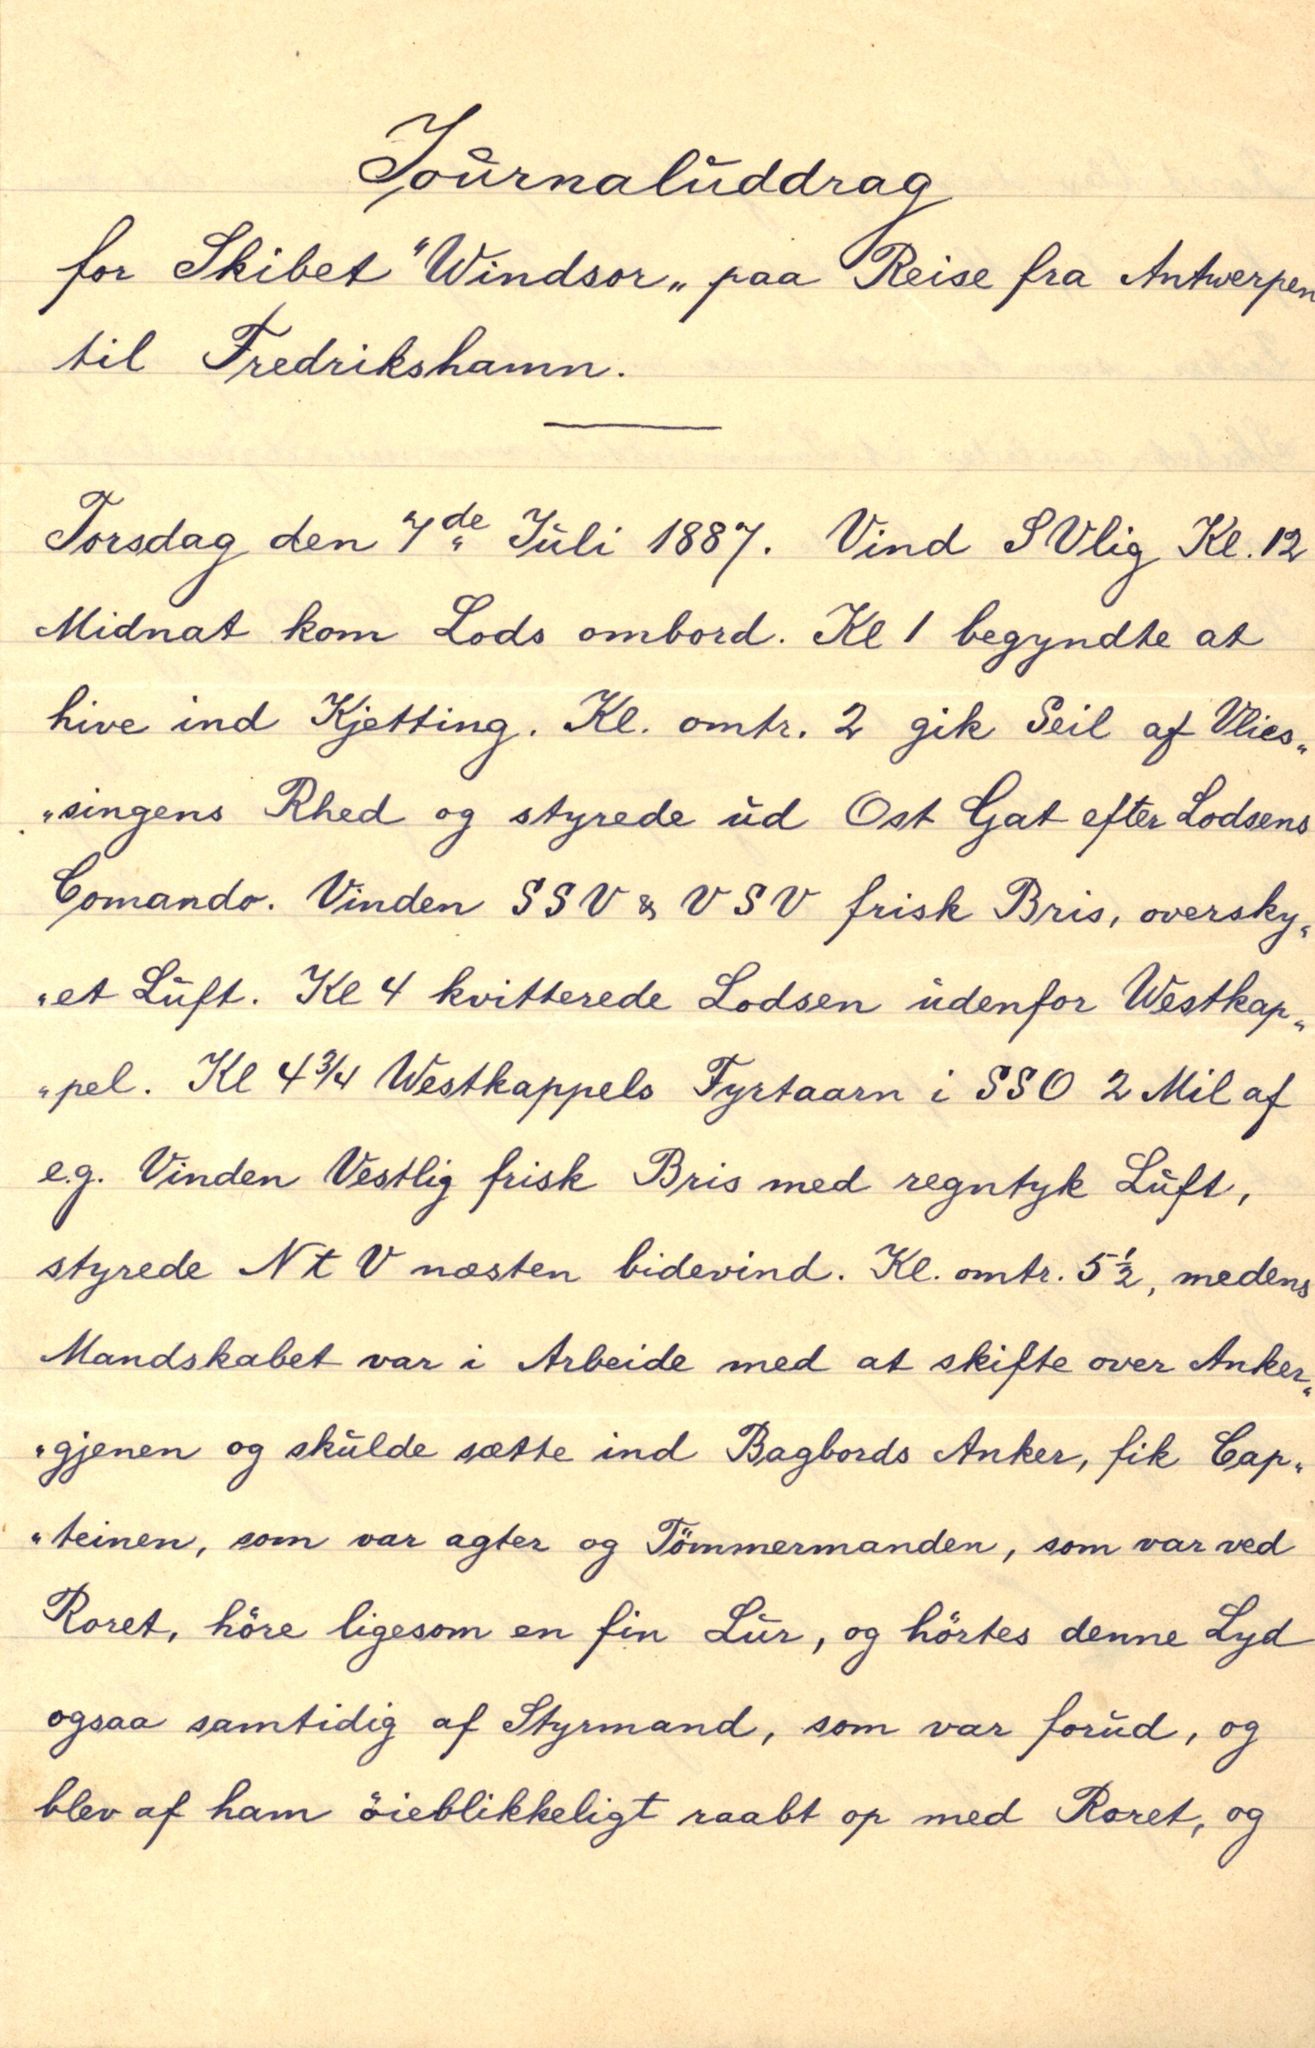 Journaluddrag
for Skibet "Windsor„ paa Reise fra Antwerpen
til Fredrikshamn.
Torsdag den 7de Juli 1887. Vind SVlig Kl. 12
Midnat kom Lods ombord. Kl 1 begyndte at
hive ind Kjetting. Kl. omtr. 2 gik Seil af Vlies„
„singens Rhed og styrede ud Ost Gat efter Lodsens
Comando. Vinden SSV & VSV frisk Bris, oversky„
„et Luft. Kl 4 kvitterede Lodsen udenfor Westkap„
„pel. Kl 4 3/4 Westkappels Fyrtaarn i SSO 2 Mil af
e.g. Vinden Vestlig frisk Bris med regntyk Luft,
styrede N t V næsten bidevind. Kl. omtr. 5 1/2, medens
Mandskabet var i Arbeide med at skifte over Anker„
„gjenen og skulde sætte ind Bagbords Anker, fik Cap„
„teinen, som var agter og Tömmermanden, som var ved
Roret, höre ligesom en fin Lur, og hörtes denne Lyd
ogsaa samtidig af Styrmand, som var forud, og
blev af ham öieblikkeligt raabt op med Roret, og